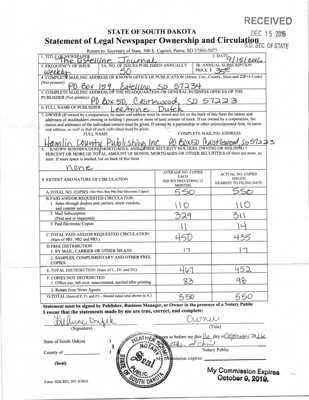 RECEIVED
DEC 15 2016
S.D. SEC. OF STATE
STATE OF SOUTH DAKOTA
Statement of Legal Newspaper Ownership and Circulation
Return to: Secretary of State, 500 E. Capitol, Pierre, SD 57501-5077
1. TITLE OF NEWSPAPER
The Estelline Journal
2. DATE
9/15/2016
3. FREQUENCY OF ISSUE
Weekly
3A. NO. OF ISSUES PUBLISHED ANNUALLY
50
3B. ANNUAL SUBSCRIPTION
PRICE $
4. COMPLETE MAILING ADDRESS OF KNOWN OFFICE OF PUBLICATION (Street, City, County, State and ZIP+4 Code)
(Not printers)
PO Box 159 Estelline SD 57234
5. COMPLETE MAILING ADDRESS OF THE HEADQUARTERS OR GENERAL BUSINESS OFFICES OF THE
PUBLISHER (Not printer)
PO Box 50, Castlewood, SD 57223
6. FULL NAME OF PUBLISHER:
LeeAnne Dufek
7. OWNER (If owned by a corporation, its name and address must be stated and list on the back of this form the names and
addresses of stockholders owning or holding 1 percent or more of total amount of stock. If not owned by a corporation, the
names and addresses of the individual owners must be given. If owned by a partnership or other unincorporated firm, its name
and address, as well as that of each individual must be given.
FULL NAME
COMPLETE MAILING ADDRESS
Hamlin County Publishing Inc. PO Box 50 Castlewood, SD 57223
8. KNOWN BONDHOLDERS, MORTGAGES, AND OTHER SECURITY HOLDERS OWNING OR HOLDING 1
PERCENT OR MORE OF TOTAL AMOUNT OF BONDS, MORTGAGES OR OTHER SECURITIES (If there are none, so
state. If more space is needed, list on back of this form.
none
9. EXTENT AND NATURE OF CIRCULATION
AVERAGE NO. COPIES
EACH
ISSUES PRECEDING 12
MONTHS
ACTUAL NO. COPIES
ISSUED
NEAREST TO FILING DATE
A. TOTAL NO. COPIES (Net Press Run Plus Paid Electronic Copies)
550
550
B. PAID AND/OR REQUESTED CIRCULATION
1. Sales through dealers and carriers, street vendors,
and counter sales.
110
110
2. Mail Subscription
(Paid and or requested)
329
311
3. Paid Electronic Copies
11
14
C. TOTAL PAID AND/OR REQUESTED CIRCULATION
(Sum of 9B1, 9B2 and 9B3.)
450
435
D. FREE DISTRIBUTION
1. BY MAIL, CARRIER OR OTHER MEANS
17
17
2. SAMPLES, COMPLIMENTARY AND OTHER FREE
COPIES
E. TOTAL DISTRIBUTION (Sum of C, D1 and D2)
467
452
F. COPIES NOT DISTRIBUTED
1. Office use, left over, unaccounted, spoiled after printing
83
98
2. Return from News Agents
G. TOTAL (Sum of E, F1 and F2 – Should equal total shown in A.)
550
550
Statement must be signed by Publisher, Business Manager, or Owner in the presence of a Notary Public
I swear that the statements made by me are true, correct, and complete:
LeeAnne Dufek
Owner
(Signature)
(Title)
State of South Dakota )
County of )
(Seal)
Notary Public
My Commission Expires
October 9, 2019.